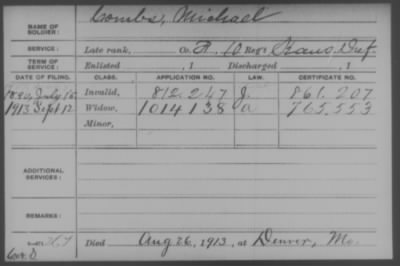 NAME OF SOLDIER: Combs, Michael
SERVICE: Late rank, Co. H, 10 Reg't Kans. Inf
TERM OF SERVICE: Enlisted , 1 Discharged , 1
DATE OF FILING. CLASS. APPLICATION NO. LAW. CERTIFICATE NO.
1890, July 15 Invalid, 812.247 J. 861.207
1913 Sept 12 Widow, 1014138 a 765.553
Minor,
ADDITIONAL SERVICES:
REMARKS:
Died Aug 26, 1913, at Denver, Mo.